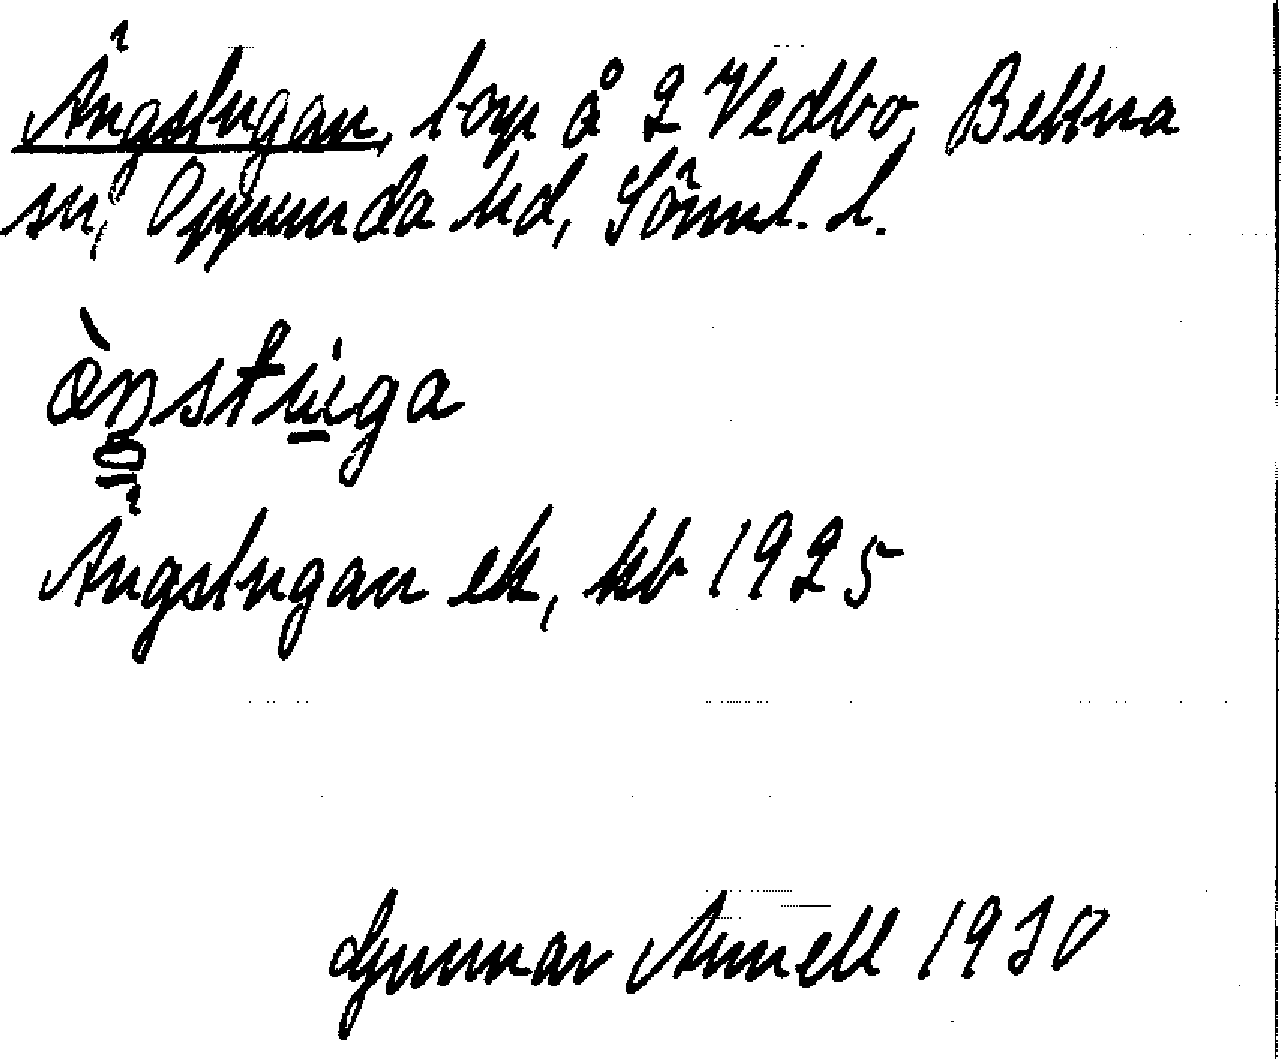 Ängstugan, torp å 2 Vedbo, Bettna
sn, Oppunda hd, Söml. l.
ɶ̀ŋstùga
Ängstugan ek, kb 1925
Gunnar Arnell 1930